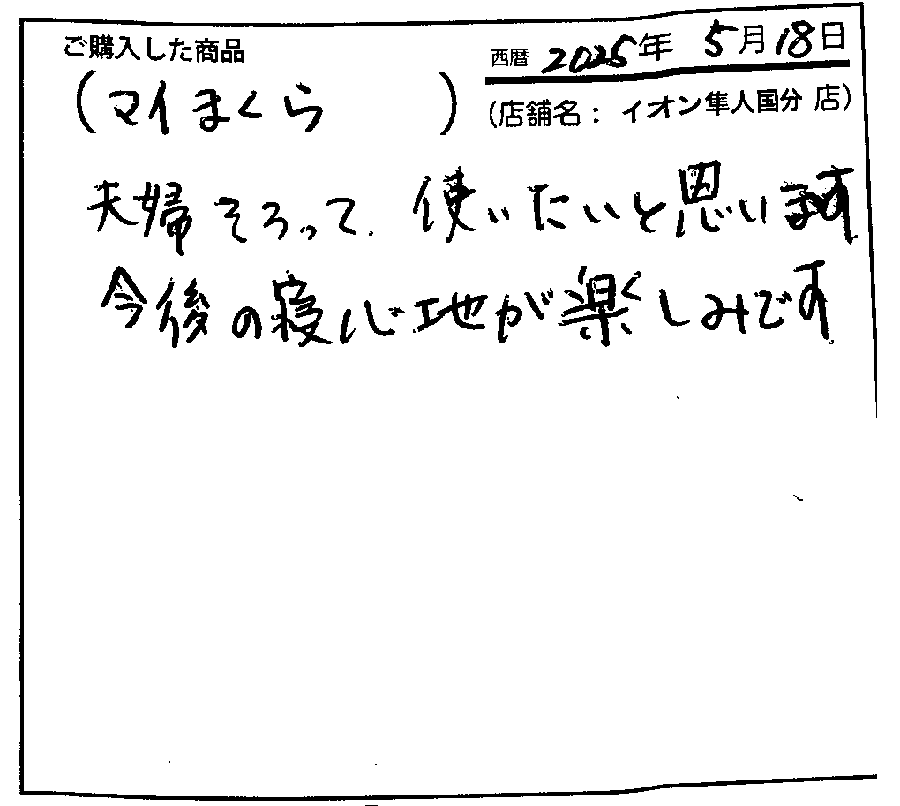 ご購入した商品
西暦 2025年 5月18日
(マイまくら)
(店舗名：イオン隼人国分 店)
夫婦そろって、使いたいと思います
今後の寝心地が楽しみです